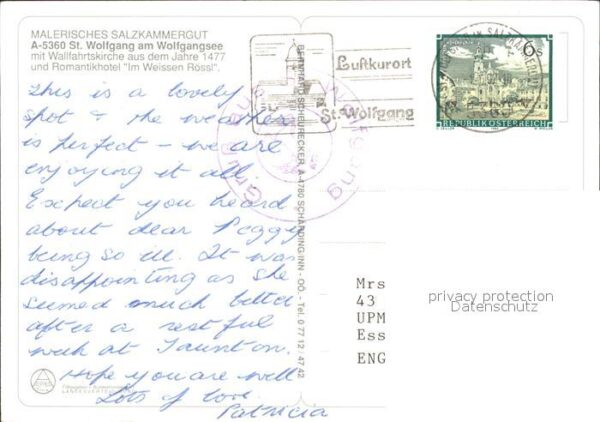 MALERISCHES SALZKAMMERGUT
A-5360 St. Wolfgang am Wolfgangsee
mit Wallfahrtskirche aus dem Jahre 1477
und Romantikhotel "Im Weissen Rössl".
This is a lovely
spot & the weather
is perfect – we are
enjoying it all.
Expect you heard
about dear Peggy
being so ill. It was
disappointing as she
seemed much better
after a restful
week at Taunton.
Hope you are well
Lots of love
Patricia
BERNHARD SCHEURECKER, A-4780 SCHÄRDING/INN - OÖ. - Tel. 0 77 12 / 47 42
Luftkurort
St. Wolfgang
6s
REPUBLIK ÖSTERREICH
Mrs
43
UPM
Ess
ENG
privacy protection
Datenschutz